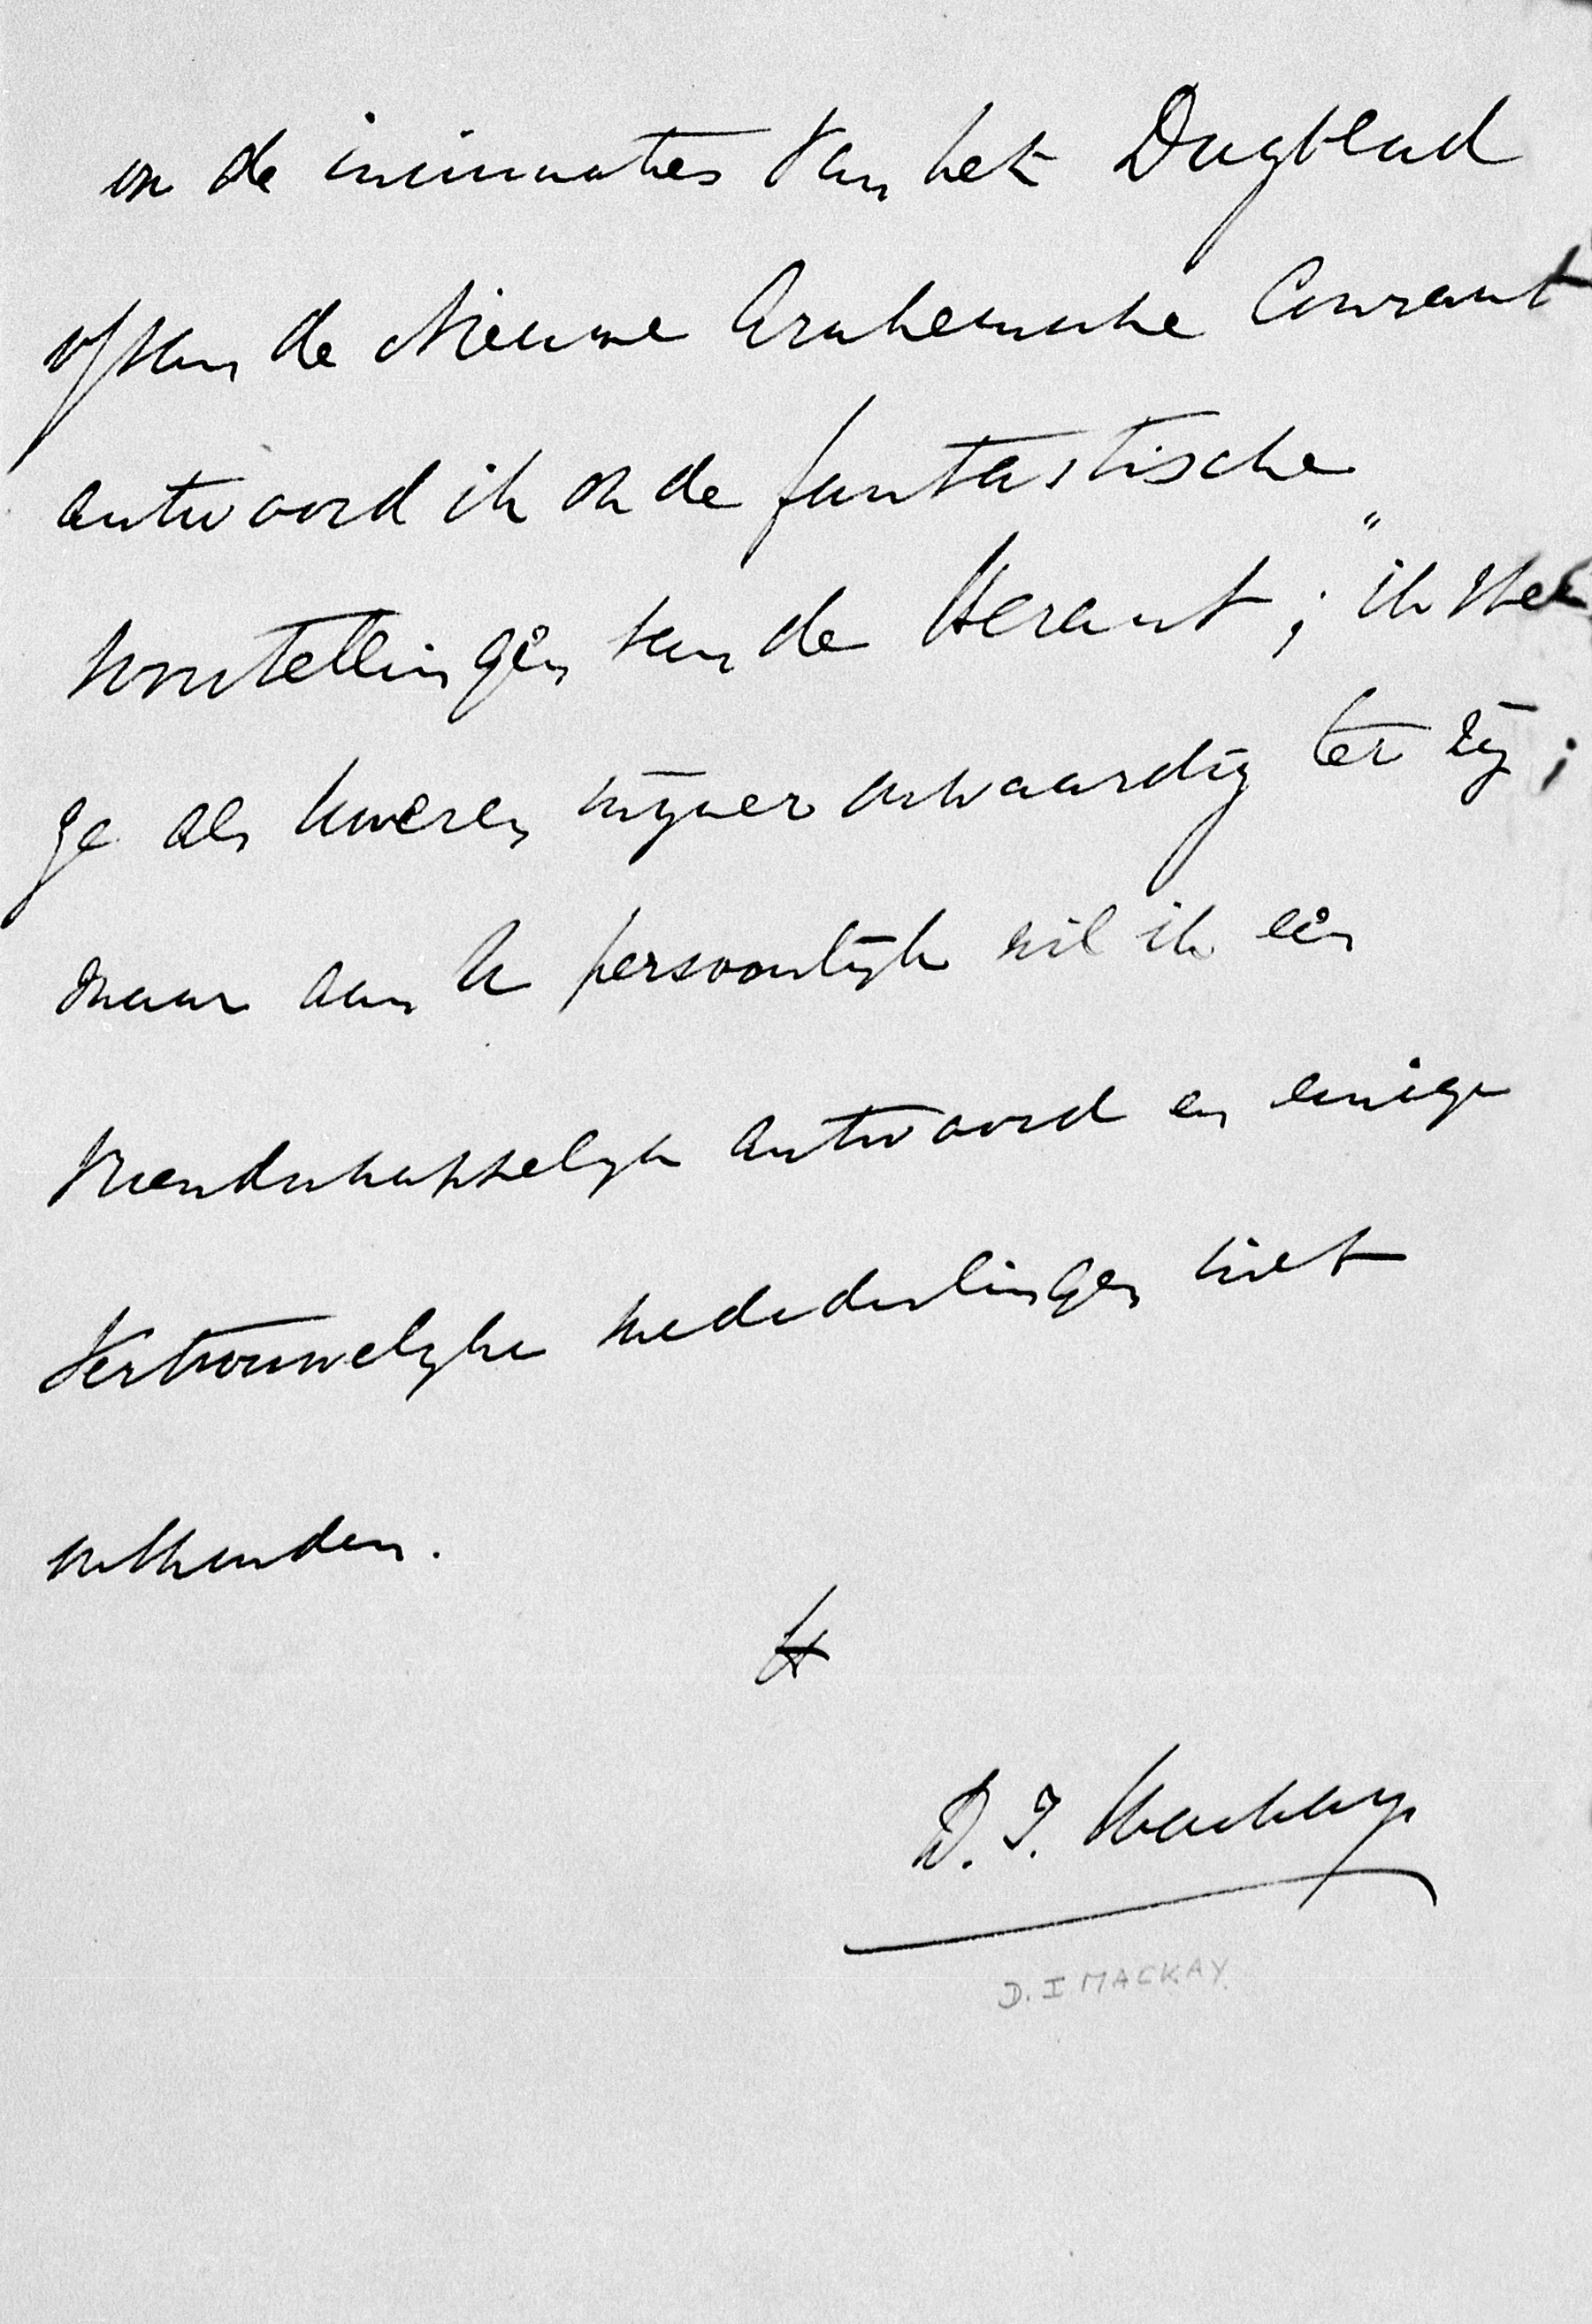 op de insinuaties van het Dagblad
of van de Nieuwe Arnhemsche Courant
antwoord ik op de fantastische
voorstellingen van de Heraut; "ik
ge als Uwer en mijner onwaardig ter zij;
maar aan U persoonlijk wil ik een
vriendschappelijk antwoord en eenige
vertrouwelijke mededeelingen niet
onthouden.
D. I. Mackay
D. I MACKAY